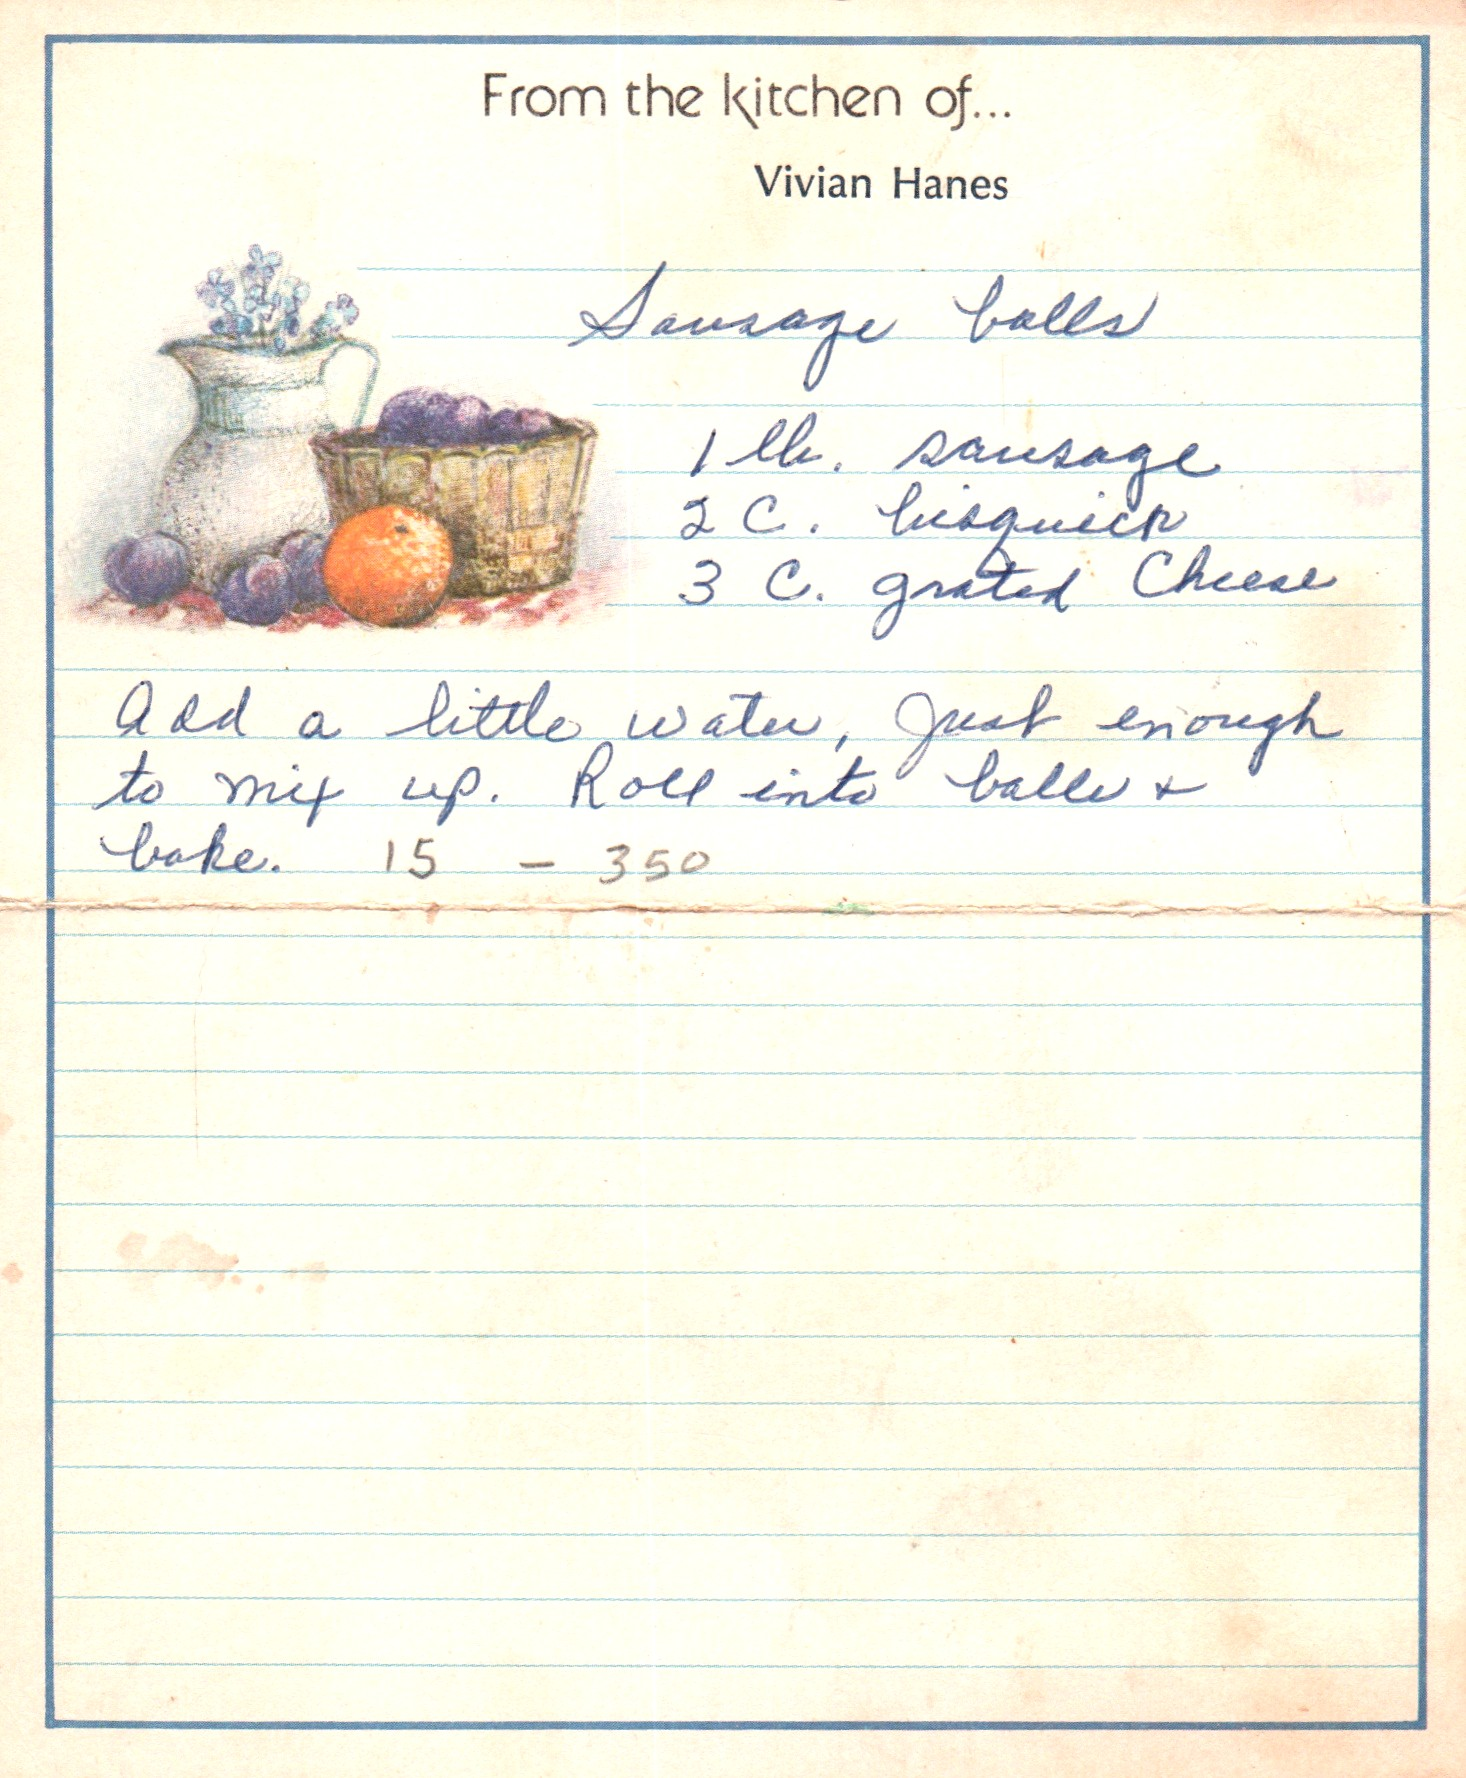 From the kitchen of...
Vivian Hanes
Sausage balls
1 lb. sausage
2 C. bisquick
3 C. grated Cheese
Add a little water, Just enough
to mix up. Roll into balls +
bake. 15 - 350